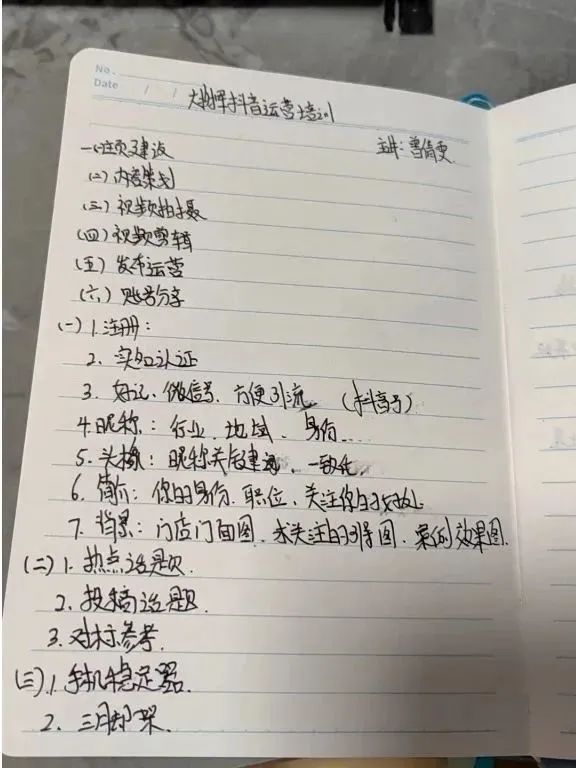 No.
Date / /
大抖音运营培训
主讲:曾倩雯
一、主页建设
(二)内容策划
(三)视频拍摄
(四)视频剪辑
(五)发布运营
(六)账号分享
(一)1.注册:
2、实名认证
3、好记、微信号、方便引流(抖音号)
4.昵称:行业、地域、身份....
5.头像:昵称关键、一致化
6.简介:你的身份、职位、关注你的好处
7、背景:门店门面图、求关注的引导图、案例效果图.
(二)1.热点话题、
2、投稿话题、
3、对标参考、
(三)、1.手机稳定器、
2、三脚架、